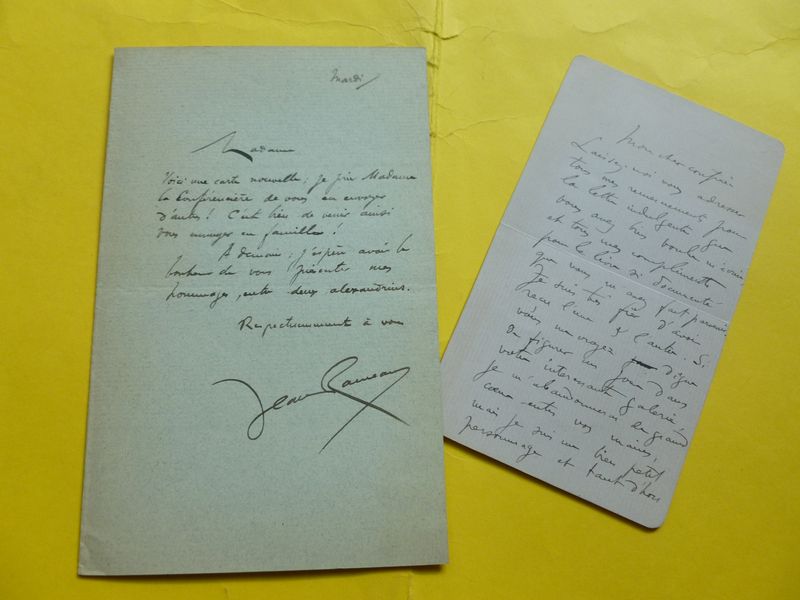 Mardi
Madame
Voici une carte nouvelle ; je prie Madame
la Conférencière de vous en envoyer
d'autres ! C'est bien de venir ainsi
vous ennuyer en famille !
A demain ; j'espère avoir le
bonheur de vous présenter mes
hommages, entre deux alexandrins.
Respectueusement à vous
Jean Rameau
Mon cher confrère
Laissez-moi vous adresser
tous mes remerciements pour
la lettre indulgente que
vous avez bien voulu m'écrire
et tous mes compliments
pour le livre si documenté
que vous m'avez fait parvenir.
Je suis très fier d'avoir
reçu l'une et l'autre. Si
vous me croyez digne
de figurer un jour dans
votre intéressante galerie
je m'abandonnerai de grand
cœur entre vos mains,
mais je suis un bien petit
personnage et tant d'hom